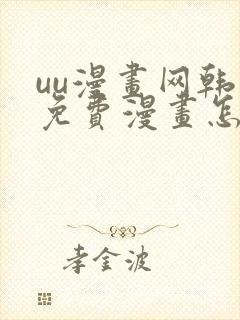 uu漫畫网韩
免費漫畫怎
李金波